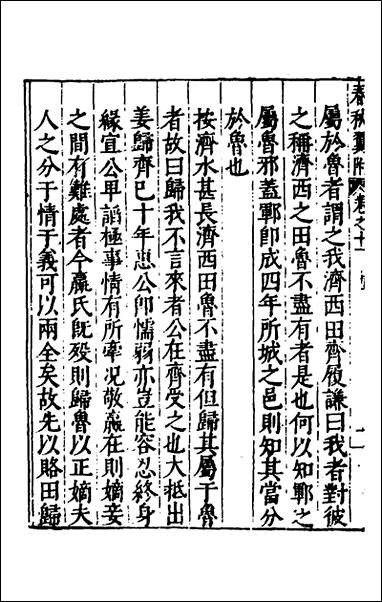 春秋翼附 卷之十一
屬於魯者謂之我濟西田齊履謙曰我者對彼
之稱濟西之田魯不盡有者是也何以知鄆之
屬魯邪蓋鄆即成四年所城之邑則知其當分
於魯也
按濟水甚長濟西田魯不盡有但歸其屬于魯
者故曰歸我不言來者公在齊受之也大抵出
姜歸齊已十年惠公即懦弱亦豈能容忍終身
緣宜公卑謟極事情有所牽况敬嬴在則嫡妾
之間有難處者今嬴氏旣歿則歸魯以正嫡夫
人之分于情于義可以兩全矣故先以賂田歸